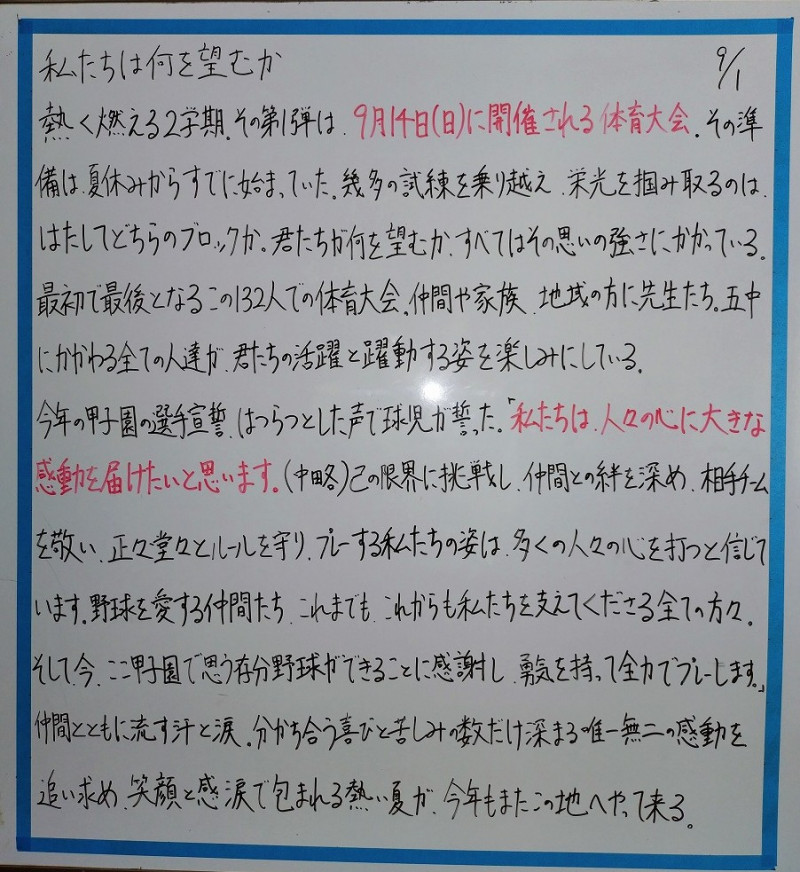 私たちは何を望むか 9/1
熱く燃える2学期。その第1弾は、9月14日(日)に開催される体育大会。その準
備は、夏休みからすでに始まっていた。幾多の試練を乗り越え、栄光を掴み取るのは、
はたしてどちらのブロックか。君たちが何を望むか、すべてはその思いの強さにかかっている。
最初で最後となるこの132人での体育大会。仲間や家族、地域の方に先生たち。五中
にかかわる全ての人達が、君たちの活躍と躍動する姿を楽しみにしている。
今年の甲子園の選手宣誓、はつらつとした声で球児が誓った。「私たちは、人々の心に大きな
感動を届けたいと思います。(中略)己の限界に挑戦し、仲間との絆を深め、相手チーム
を敬い、正々堂々とルールを守り、プレーする私たちの姿は、多くの人々の心を打つと信じて
います。野球を愛する仲間たち、これまでも、これからも私たちを支えてくださる全ての方々。
そして、今、ここ甲子園で思う存分野球ができることに感謝し、勇気を持って全力でプレーします。」
仲間とともに流す汗と涙。分かち合う喜びと苦しみの数だけ深まる唯一無二の感動を
追い求め、笑顔と感涙で包まれる熱い夏が、今年もまたこの地へやって来る。